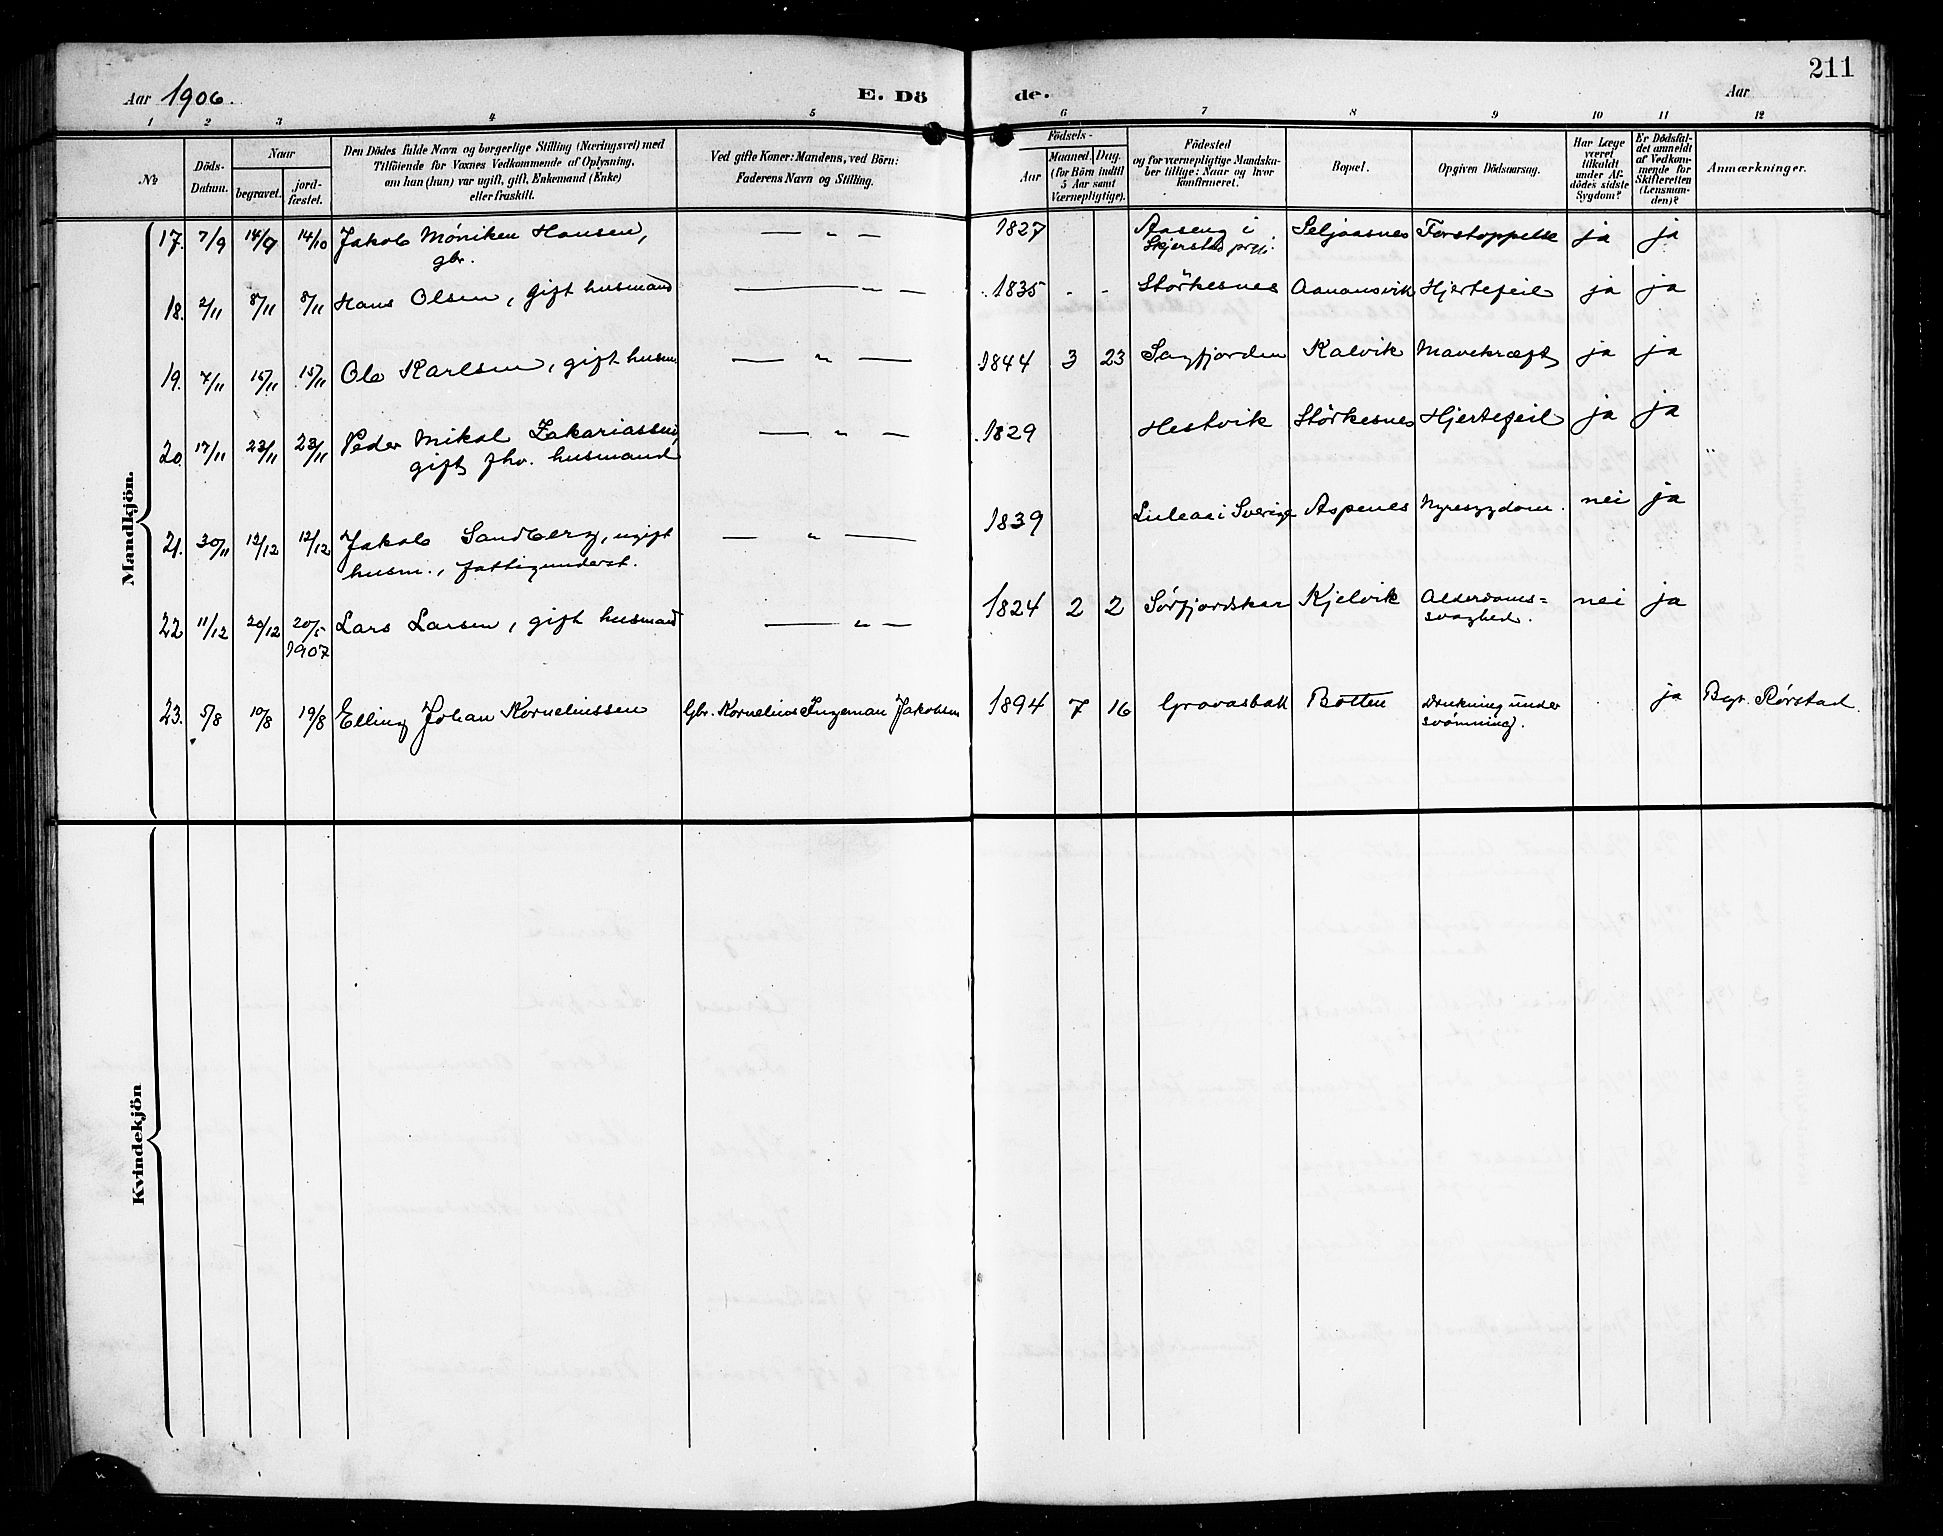 211
Aar 1906. E. Dö de. Aar
1 2 3 4 5 6 7 8 9 10 11 12
No
Döds-Datum.
Naar
begravet.
jord-fæstet.
Den Dödes fulde Navn og borgerlige Stilling (Næringsvei) med
Tilföiende for Voxnes Vedkommende af Oplysning,
om han (hun) var ugift, gift, Enkemand (Enke)
eller fraskilt.
Ved gifte Koner: Mandens, ved Börn:
Faderens Navn og Stilling.
Födsels-
Aar
Maaned. Dag.
(for Börn indtil
5 Aar samt
Værnepligtige).
Födested
og for værnepligtige Mandska-
ber tillige: Naar og hvor
konfirmeret.
Bopæl.
Opgiven Dödsaarsag.
Har Læge
været
tilkaldt
under Af-
dödes sidste
Sygdom?
Er Dödsfal-
det anmeldt
af Vedkom-
mende for
Skifteretten
(Lensman-
den)?
Anmærkninger.
Mandkjön.
17. 7/9 14/9 14/10 Jakob Møniken Hansen, — " — 1827 Aaseng i Seljaasnes Forstoppelse ja ja
gbr. Skjerstad prgj.
18. 2/11 8/11 8/11 Hans Olsen, gift husmand — " — 1835 - - Störkesnes Aanansvik Hjertefeil ja ja
19. 7/11 15/11 15/11 Ole Karlsen, gift husm. — " — 1844 3 23 Sagfjorden Kalvik Mavekræft ja ja
20. 17/11 23/11 23/11 Peder Mikal Zakariassen, — " — 1829 Hestvik Störkesnes Hjertefeil ja ja
gift fhv. husmand
21. 30/11 12/12 12/12 Jakob Sandberg, ugift — " — 1839 Luleaa i Sverige Aspenes Nyresygdom. nei ja
husm., fattigunderst.
22 11/12 20/12 20/5 Lars Larsen, gift husmand — " — 1824 2 2 Sørfjordskar Kjelvik Alderdoms= nei ja
1907 svaghed.
23. 5/8 10/8 19/8 Elling Johan Korneliussen Gbr. Kornelius Ingeman Jakobsen 1894 7 16 Gravasbak Botten Drukning under ja Bgr. Rørstad.
svømning.
Kvindekjön